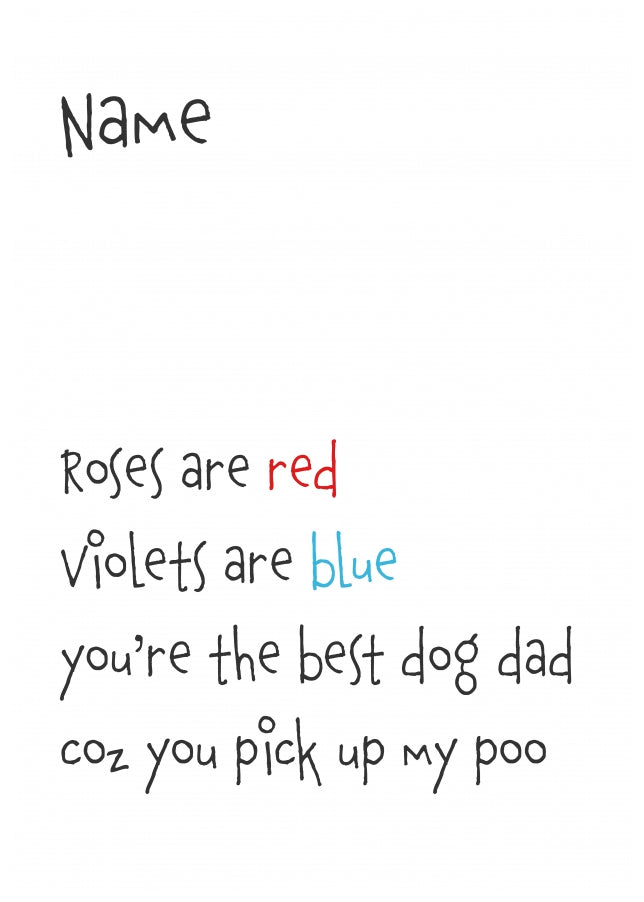 Name
Roses are red
Violets are blue
you're the best dog dad
coz you pick up my poo